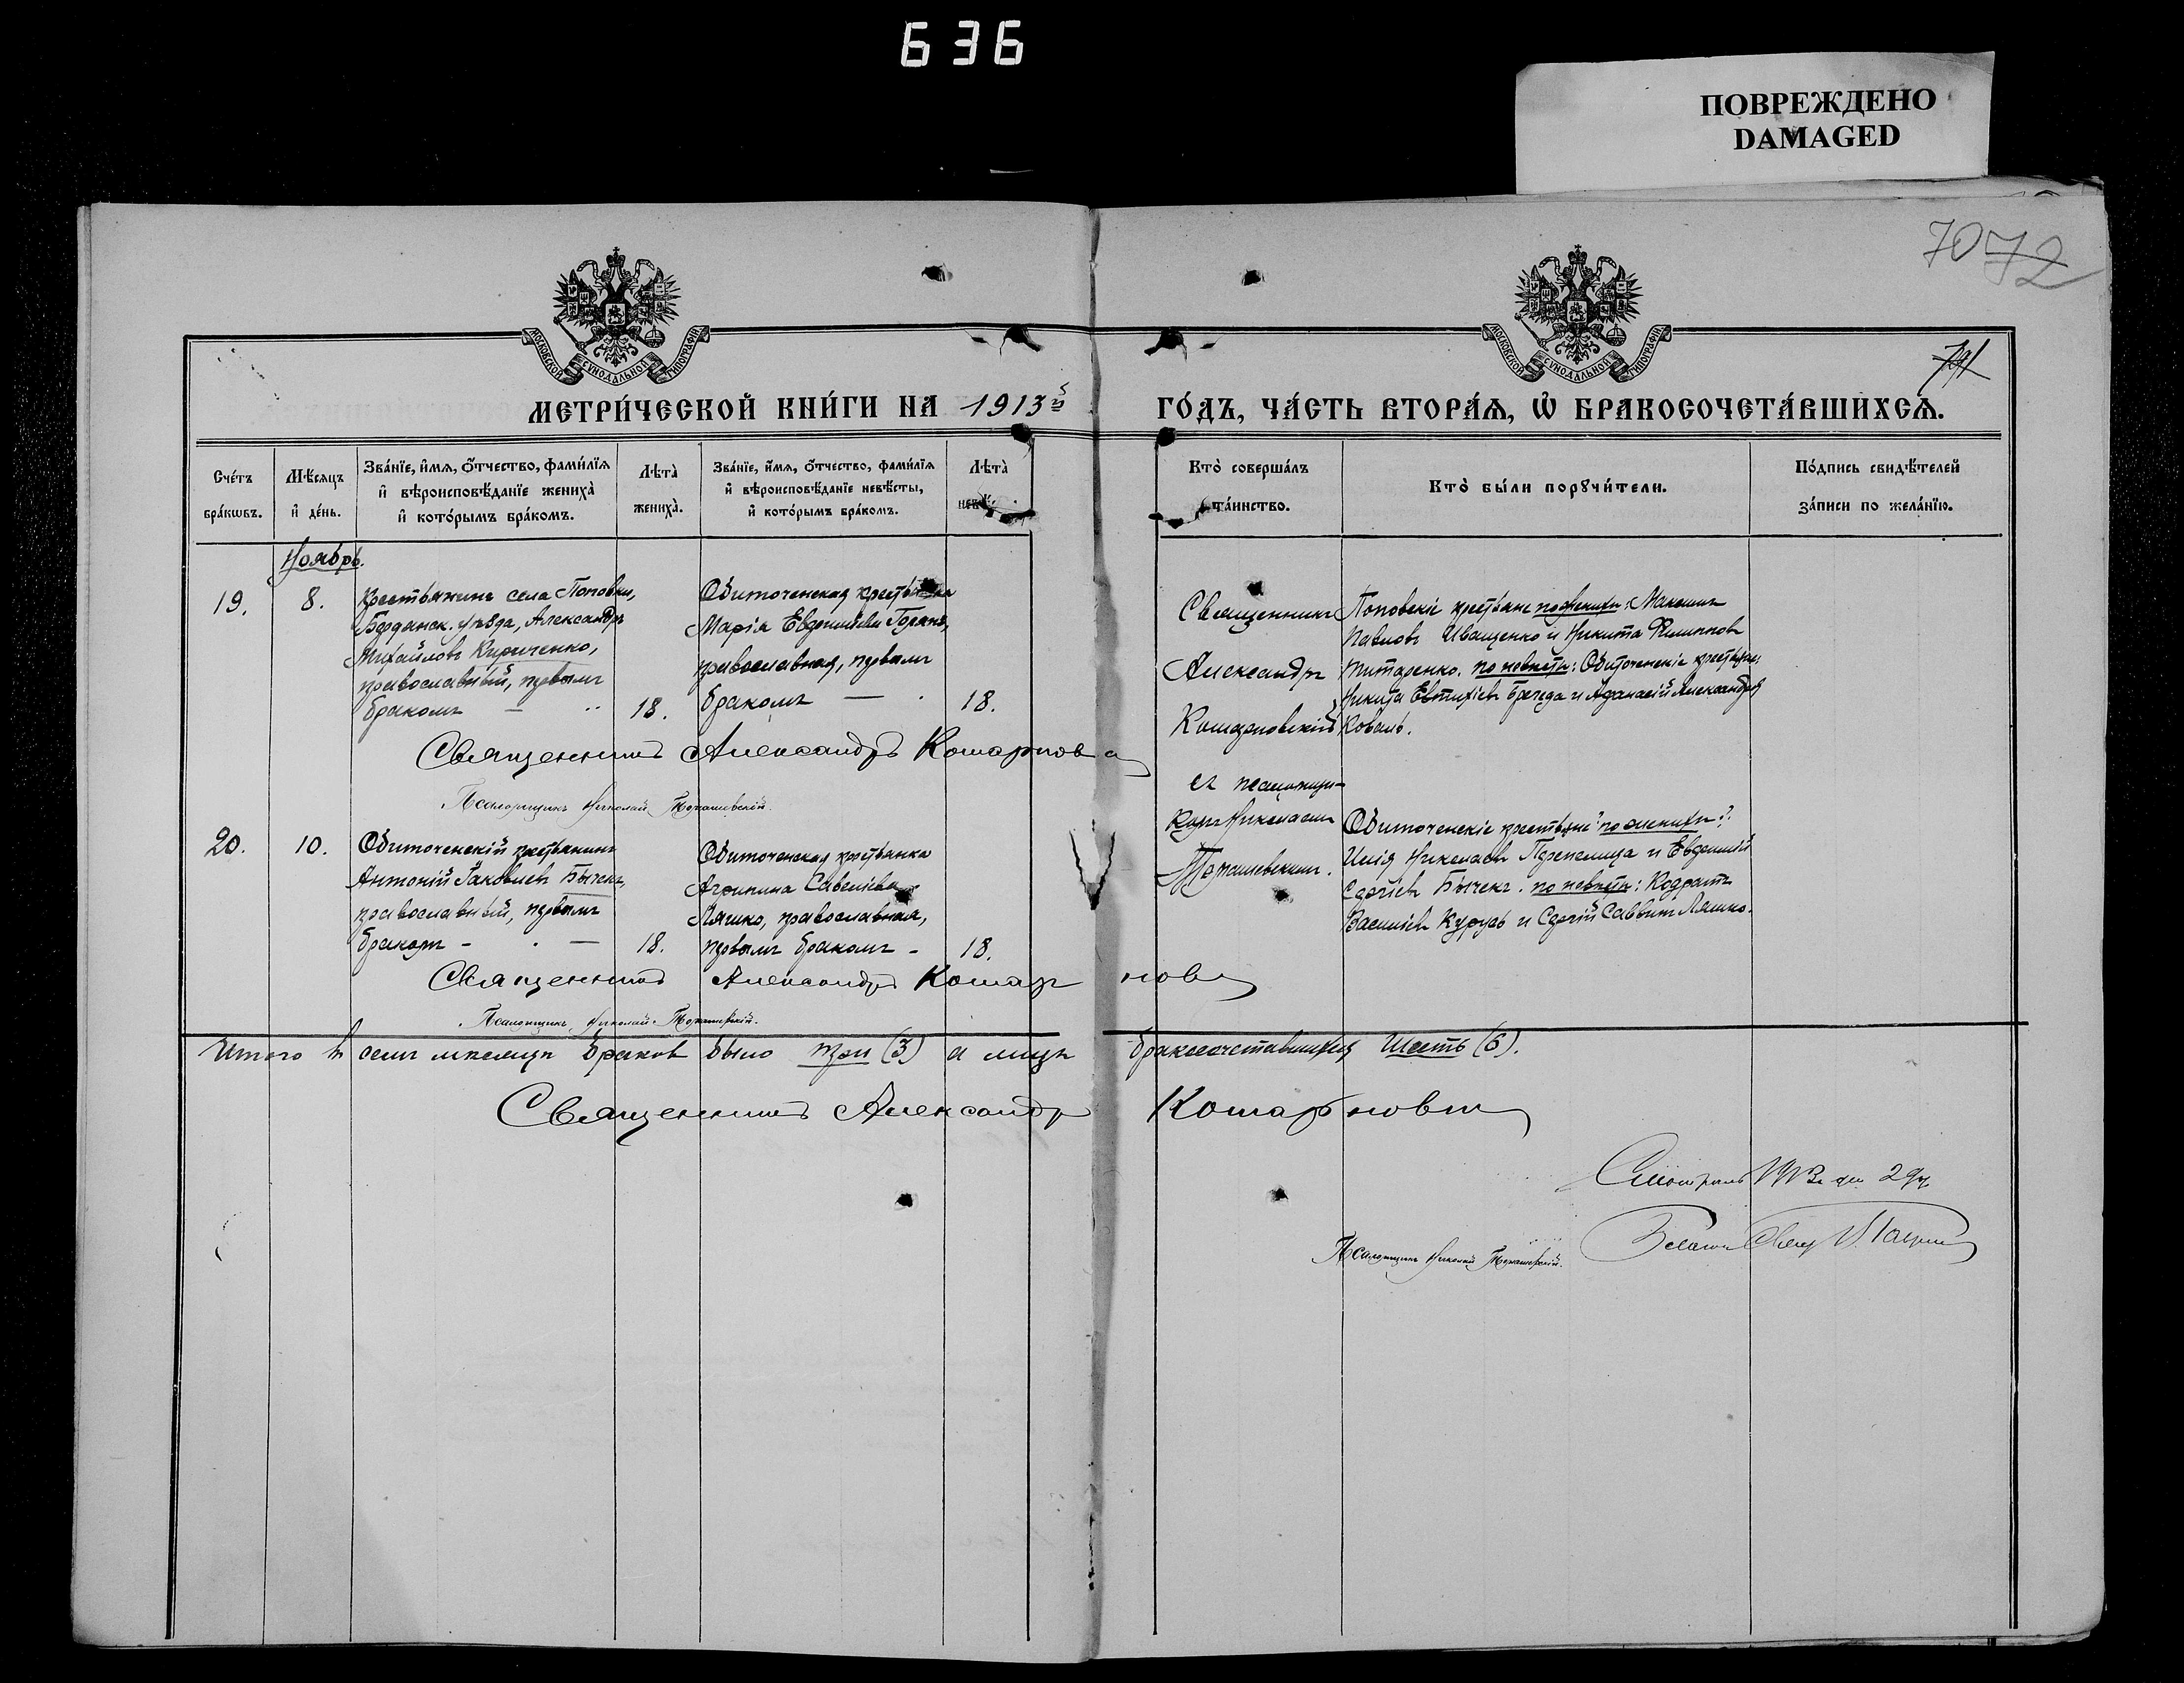 636
ПОВРЕЖДЕНО
DAMAGED
70 72
71
МОСКОВСКОЙ СѴНОДАЛЬНОЙ ТИПОГРАФІИ
МОСКОВСКОЙ СѴНОДАЛЬНОЙ ТИПОГРАФІИ
МЕТРИ́ЧЕСКОЙ КНИ́ГИ НА 1913й ГО́ДЪ, ЧА́СТЬ ВТОРА́Я, Ѡ БРАКОСОЧЕТА́ВШИХСЯ.
Сче́тъ
бра́кѡвъ.
Мѣ́сяцъ
и де́нь.
Зва́нїе, и́мя, о́тчество, фами́лїя
и вѣроисповѣ́данїе жениха̀
и кото́рымъ бра́комъ.
Лѣта̀
жениха̀.
Зва́нїе, и́мя, о́тчество, фами́лїя
и вѣроисповѣ́данїе невѣ́сты,
и кото́рымъ бра́комъ.
Лѣта̀
невѣ́
Кто̀ соверша́лъ
та́инство.
Кто̀ бы́ли порꙋчи́тели.
По́дпись свидѣ́телей
за́писи по жела́нїю.
Ноябрь.
19.
8.
Крестьянинъ села Поповки,
Бердянск. уѣзда, Александръ
Михайловъ Кириченко,
православный, первымъ
бракомъ — 18.
Обиточенская крестьянка
Марія Евфиміева
православная, первымъ
бракомъ — 18.
Священникъ
Александръ
Кошарновскій
съ псаломщи-
комъ Николаемъ
Томашевскимъ.
Поповскіе крестьяне по женихѣ: Максимъ
Павловъ Иващенко и Никита Филипповъ
Титаренко. по невѣстѣ: Обиточенскіе крестьяне:
Никита Евтихіевъ и Афанасій Александровъ
Коваль.
Священникъ Александръ Кошарнов
Псаломщикъ Николай Томашевскій.
20.
10.
Обиточенскій крестьянинъ
Антоній Іаковлевъ Бычекъ,
православный, первымъ
бракомъ - — 18.
Обиточенская крестьянка
Агрипина Савеліева
Ляшко, православная,
первымъ бракомъ - 18.
Обиточенскіе крестьяне: по женихѣ:
Илія Николаевъ Перепелица и Евфимій
Сергіевъ Бычекъ. по невѣстѣ: Кодратъ
Василіевъ Курусь и Сергій Саввинъ Ляшко.
Священникъ Александръ Кошарнов
Псаломщикъ Николай Томашевскій.
Итого въ семъ мѣсяцѣ браковъ было три (3) а лицъ бракосочетавшихся шесть (6).
Священникъ Александръ Кошарновск
Смотрѣлъ 1913
Псаломщикъ Николай Томашевскій.